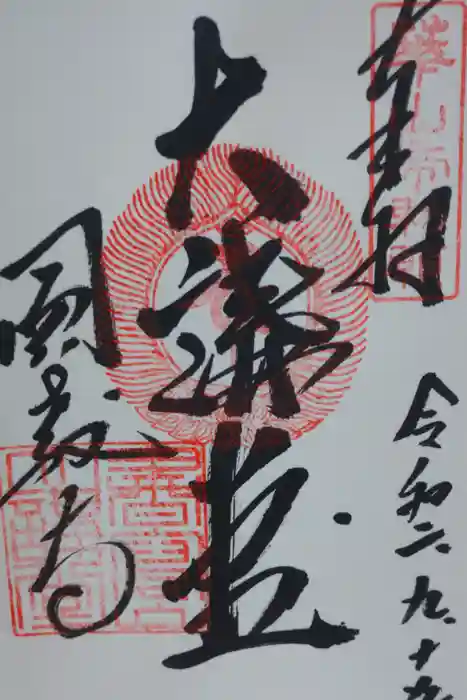 奉拝
大講堂
圓教寺
令和二.九.十九